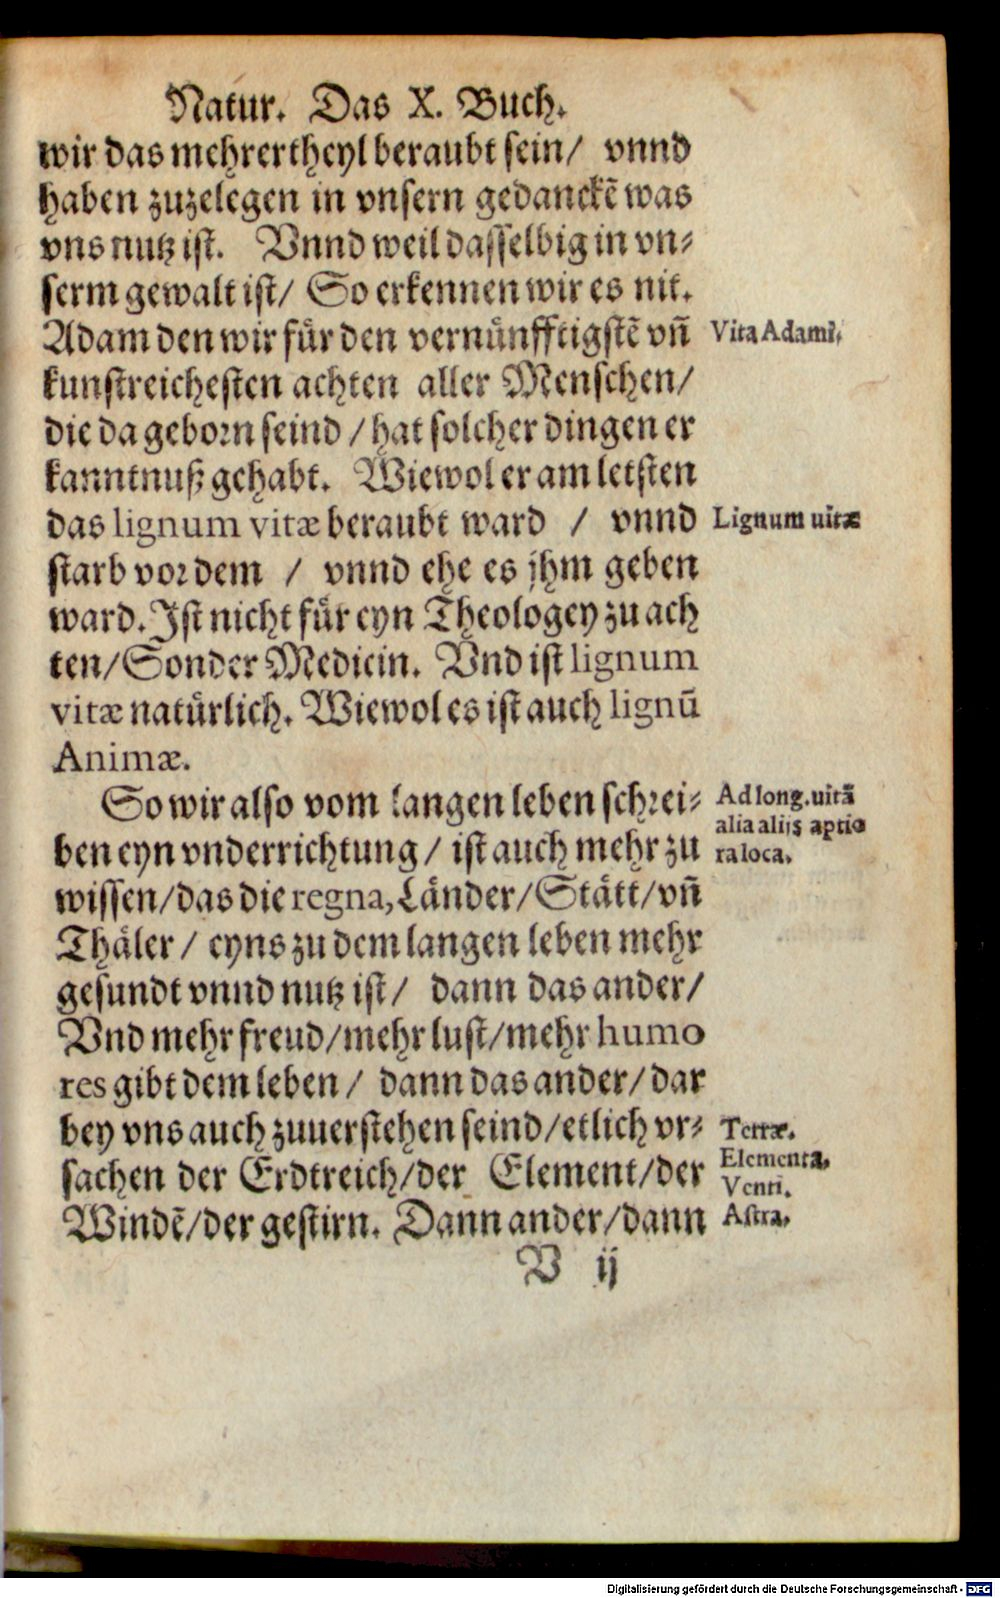 Natur. Das X. Buch.
wir das mehrertheyl beraubt sein/ vnnd
haben zuzelegen in vnsern gedanckē was
vns nutz ist. Vnnd weil dasselbig in vn⸗
serm gewalt ist/ So erkennen wir es nit.
Adam den wir für den vernünfftigstē vñ
Vita Adami.
kunstreichesten achten aller Menschen/
die da geborn seind / hat solcher dingen er
kanntnuß gehabt. Wiewol er am letsten
das lignum vitæ beraubt ward / vnnd
Lignum uitæ
starb vor dem / vnnd ehe es jhm geben
ward. Ist nicht für eyn Theologey zu ach
ten/ Sonder Medicin. Vnd ist lignum
vitæ natürlich. Wiewol es ist auch lignū
Animæ.
So wir also vom langen leben schrei⸗
Ad long. uitā
alia alijs aptio
ra loca.
ben eyn vnderrichtung / ist auch mehr zu
wissen/ das die regna, Länder/ Stätt/ vñ
Thäler / eyns zu dem langen leben mehr
gesundt vnnd nutz ist/ dann das ander/
Vnd mehr freud/ mehr lust/ mehr humo
res gibt dem leben / dann das ander/ dar
bey vns auch zuuerstehen seind/ etlich vr⸗
Terræ.
sachen der Erdtreich/ der Element/ der
Elementa.
Venti.
Windē/ der gestirn. Dann ander/ dann
Astra.
V ij
Digitalisierung gefördert durch die Deutsche Forschungsgemeinschaft - DFG